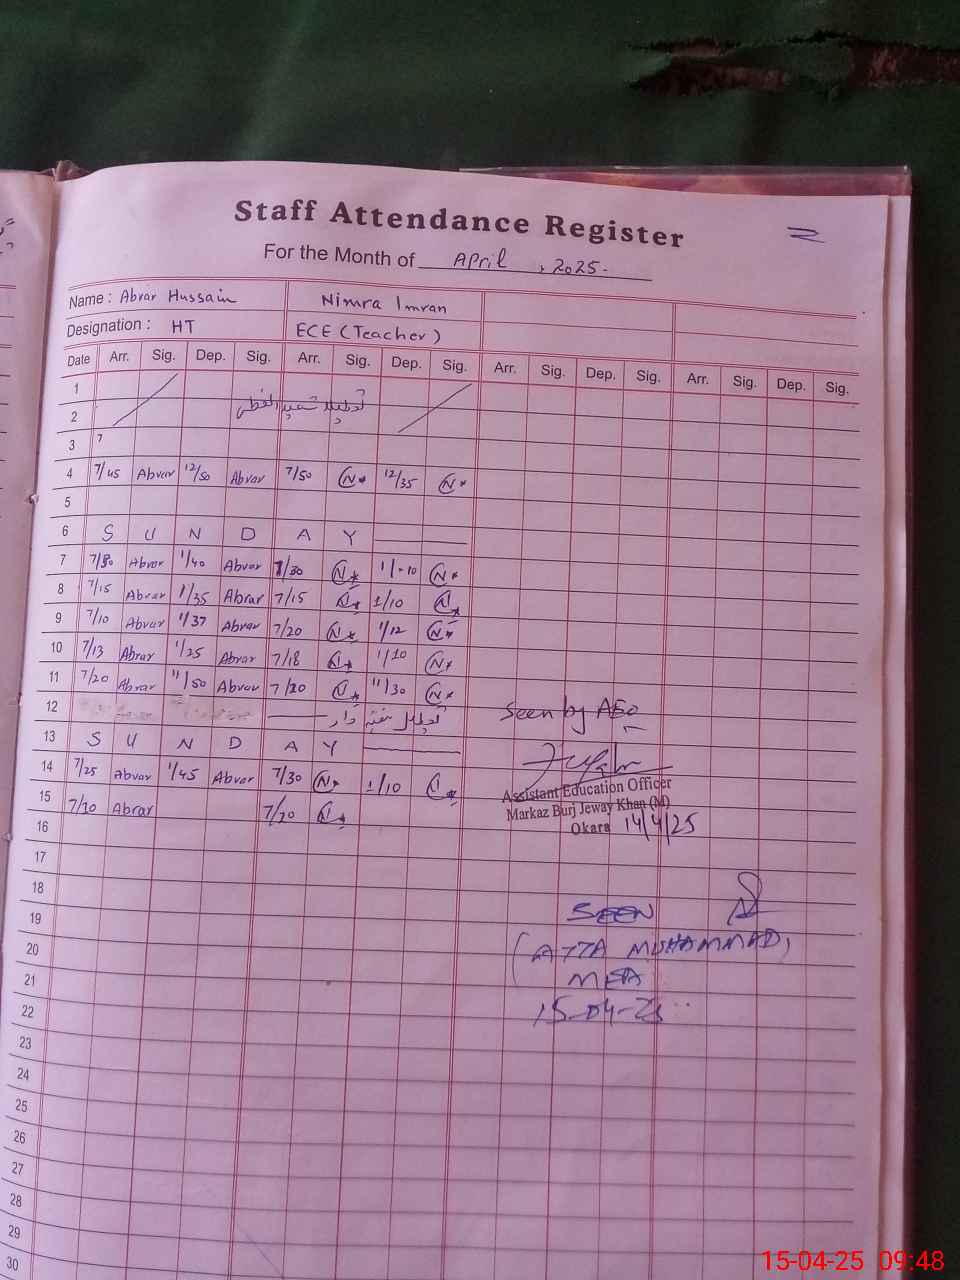 Staff Attendance Register
For the Month of April, 2025.
Name: Abrar Hussain Nimra Imran
Designation: HT ECE (Teacher)
Date Arr. Sig. Dep. Sig. Arr. Sig. Dep. Sig. Arr. Sig. Dep. Sig. Arr. Sig. Dep. Sig.
1
2 تعطیلات عید الفطر
3 7
4 7/45 Abrar 12/50 Abrar 7/50 N 12/35 N
5
6 S U N D A Y
7 Abrar 1/40 Abrar 7/30 N 1/10 N
8 7/15 Abrar 1/35 Abrar 7/15 N 1/10 N
9 7/10 Abrar 1/37 Abrar 7/20 N 1/12 N
10 7/13 Abrar 1/25 Abrar 7/18 N 1/10 N
11 7/20 Abrar 11/50 Abrar 7/20 N 11/30 N
12 تعطیل ہفتہ وار
Seen by AEO
13 S U N D A Y
14 7/25 Abrar 1/45 Abrar 7/30 N 1/10 N
Assistant Education Officer
Markaz Burj Jeway Khan (M)
Okara 14/4/25
15 7/20 Abrar 7/20 N
16
17
18
19 SEEN
20 (ATTA MUHAMMAD,
21 MEA
22 15-04-25
23
24
25
26
27
28
29
30
15-04-25 09:48